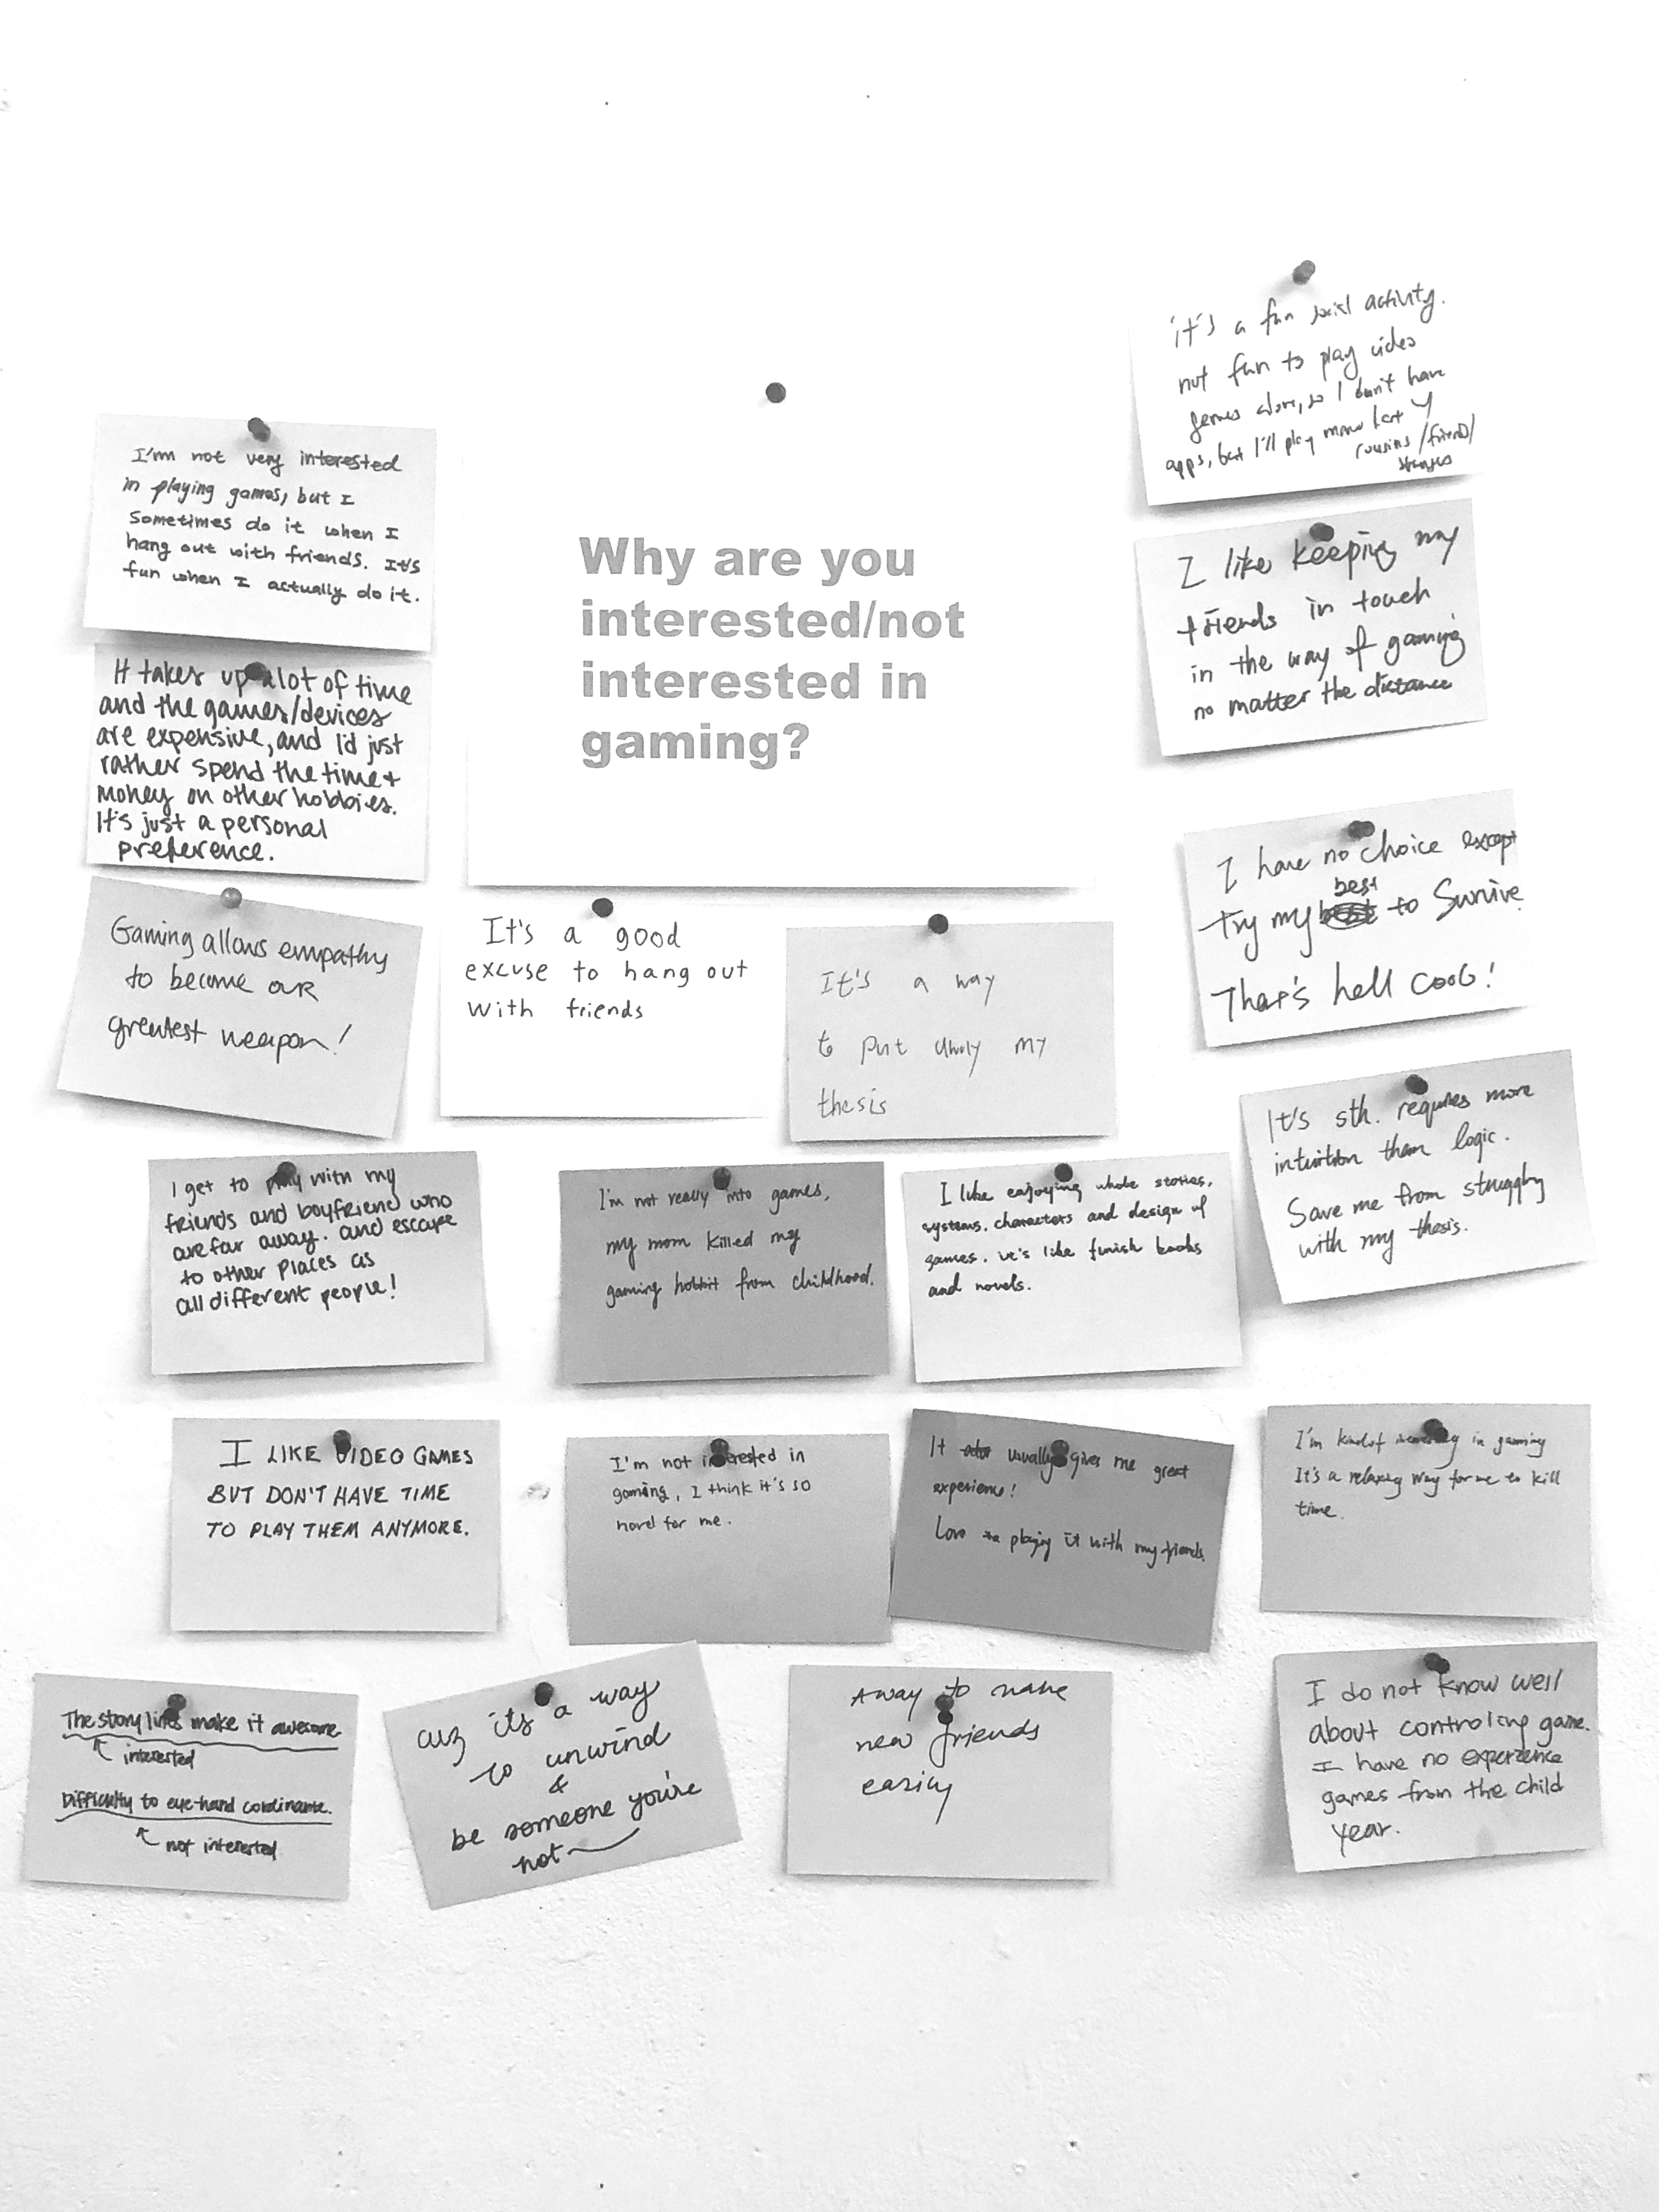 Why are you
interested/not
interested in
gaming?
I'm not very interested
in playing games, but I
sometimes do it when I
hang out with friends. It's
fun when I actually do it.
It takes up a lot of time
and the games/devices
are expensive, and I'd just
rather spend the time +
money on other hobbies.
It's just a personal
preference.
Gaming allows empathy
to become our
greatest weapon!
It's a good
excuse to hang out
with friends
It's a way
to put away my
thesis
it's a fun social activity.
not fun to play video
games alone, so I don't have
apps, but I'll play mario kart w/
cousins/friends/
strangers
I like keeping my
friends in touch
in the way of gaming
no matter the distance
I have no choice except
try my best to Survive.
That's hell cool!
It's sth. requires more
intuition than logic.
Save me from struggling
with my thesis.
I get to play with my
friends and boyfriend who
are far away. and escape
to other places as
all different people!
I'm not really into games,
my mom killed my
gaming from childhood.
I like enjoying whole stories,
systems, characters and design of
games. it's like finish books
and novels.
I LIKE VIDEO GAMES
BUT DON'T HAVE TIME
TO PLAY THEM ANYMORE.
I'm not interested in
gaming, I think it's so
hard for me.
It usually gives me great
experience!
Love playing it with my friends.
I'm kind of in gaming
It's a relaxing way for me to kill
time.
The story lines make it awesome
interested
Difficulty to eye-hand cordinante.
not interested
cuz its a way
to unwind
&
be someone you're
not
A way to make
new friends
easily
I do not know well
about controling game.
I have no experience
games from the child
year.